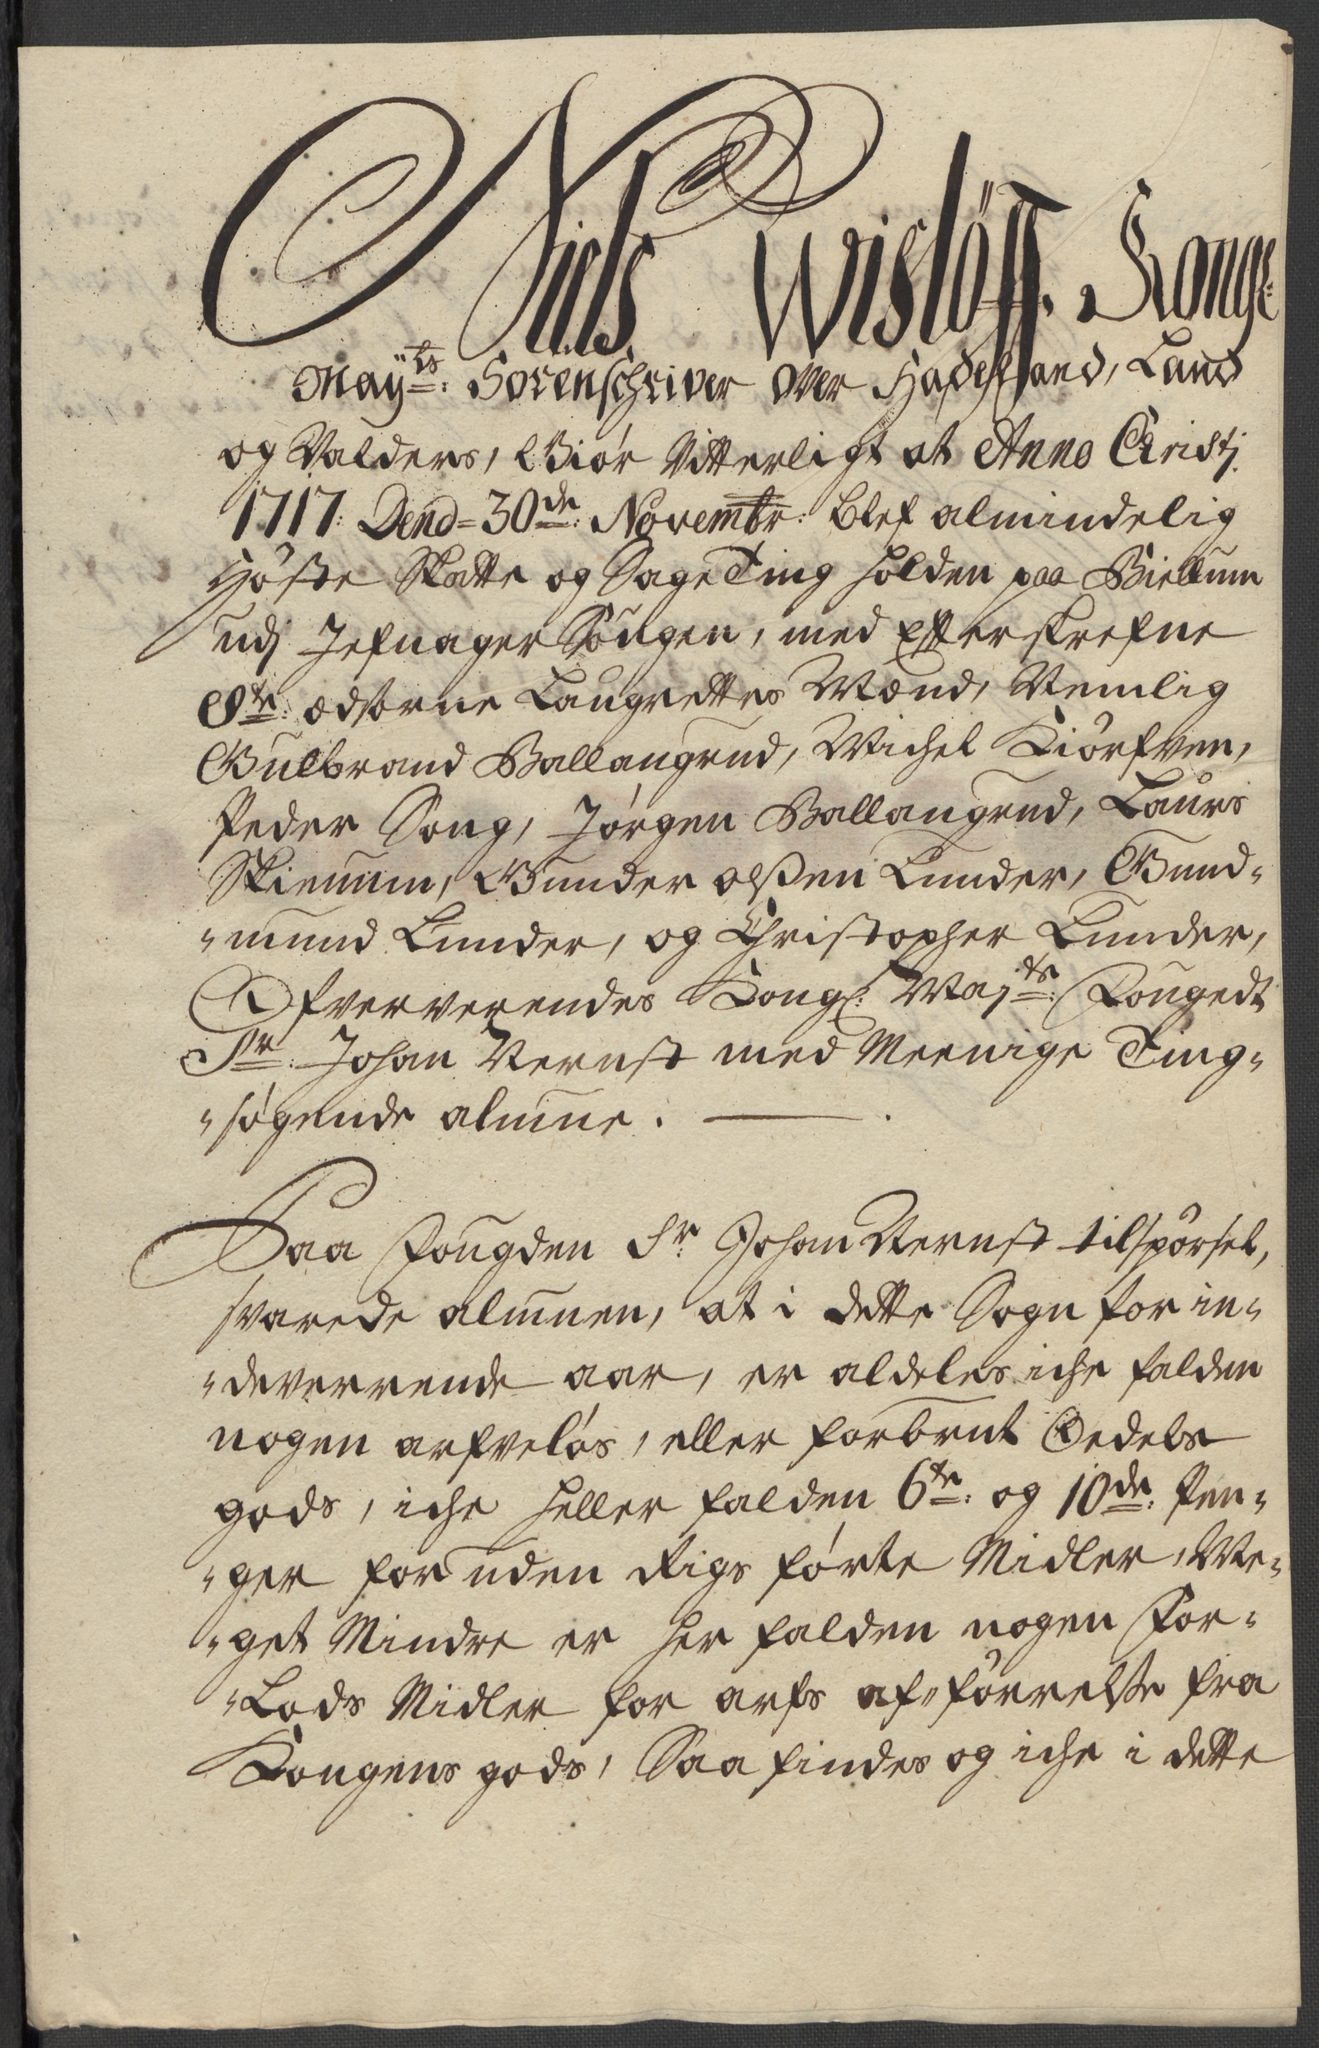 Niels Wislöff. Konge:
Mayts: Sorenschriver over Hadeland, Land
og Valders, Giör Vitterligt at Anno Christj
1717: Dend= 30de: Novembr: blef almindelig
Höste Skatte og Sage Ting holden paa Bielkum
udj Jefnager Sougen, med Efterskrefne
8te: ædsorne Laugrettes Mænd, Nemlig
Gulbrand Ballangrud, Michel Kiörfven,
Peder Soug, Jørgen Ballangrud, Laurs
Skiennum, Gunder olßen Lunder, Gund-
-mund Lunder, og Christopher Lunder,
Ofververendes Kongl: Majts: Fougedt
Sr: Johan Vernst med Meenige Ting-
-søgende almue.
Paa Fougden Sr Johan Vernst tilspörsel,
svarede almuen, at i dette Sogn for in-
-deverende aar, er aldeles iche falden
nogen arfveløs, eller forbrut Oedels
gods, iche heller falden 6te: og 10de: Pen-
-ger for uden Rigs førte Midler, Me-
-get Mindre er her falden nogen For-
-Lods Midler for arfs af förrelße fra
Kongens gods, Saa findes og iche i dette